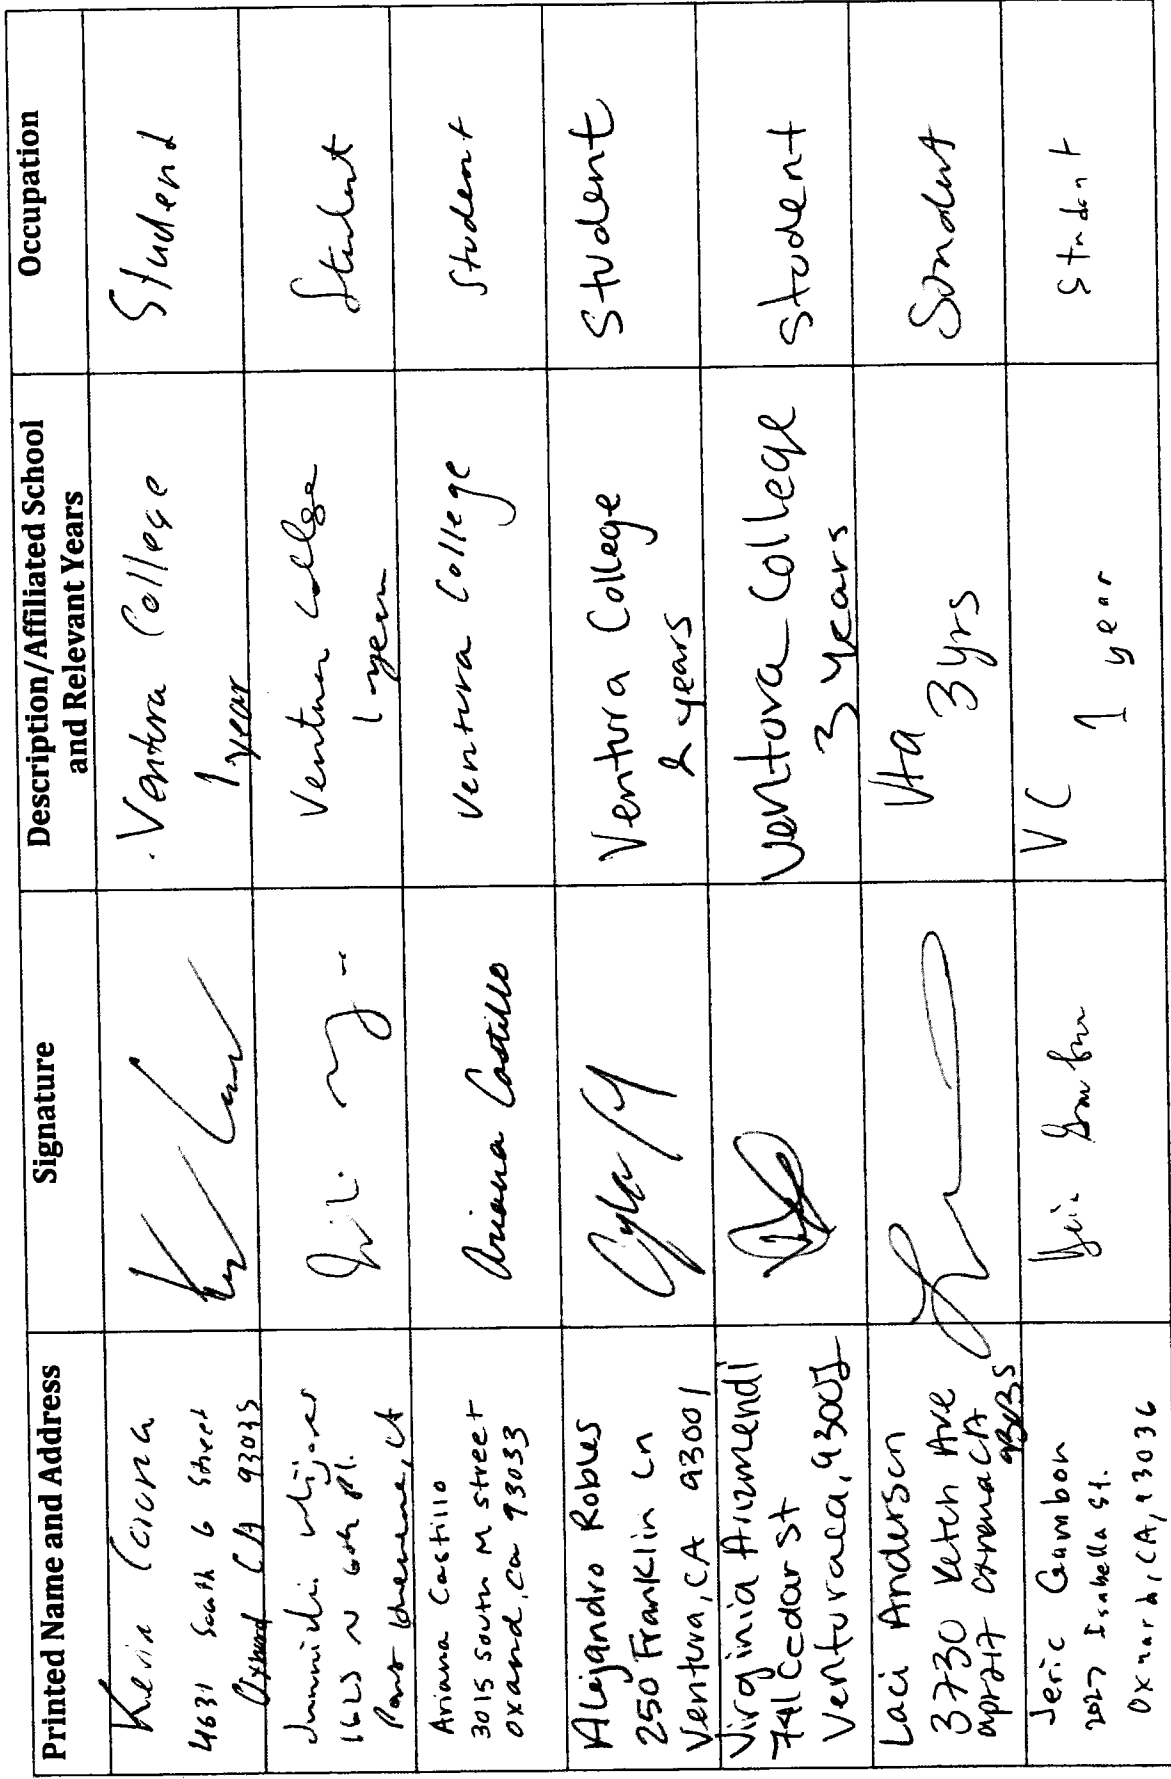 Printed Name and Address
Signature
Description/Affiliated School
and Relevant Years
Occupation
Kevin Corona
4631 South G Street
Oxnard CA 93035
Ventura College
1 year
Student
N 6th Pl.
Port Hueneme, CA
Ventura College
1 year
Student
Ariana Castillo
3015 South M street
Oxnard, Ca 93033
Ariana Castillo
Ventura College
Student
Alejandro Robles
250 Franklin Ln
Ventura, CA 93001
Ventura College
2 years
Student
Virginia Arizmendi
741 Cedar st
Ventura ca, 93001
Ventura College
3 years
Student
Laci Anderson
3730 Ketch Ave
93035
Vta
3 yrs
Jeric Gambon
2027 Isabella St.
Oxnard, CA, 93036
VC
1 year
Student